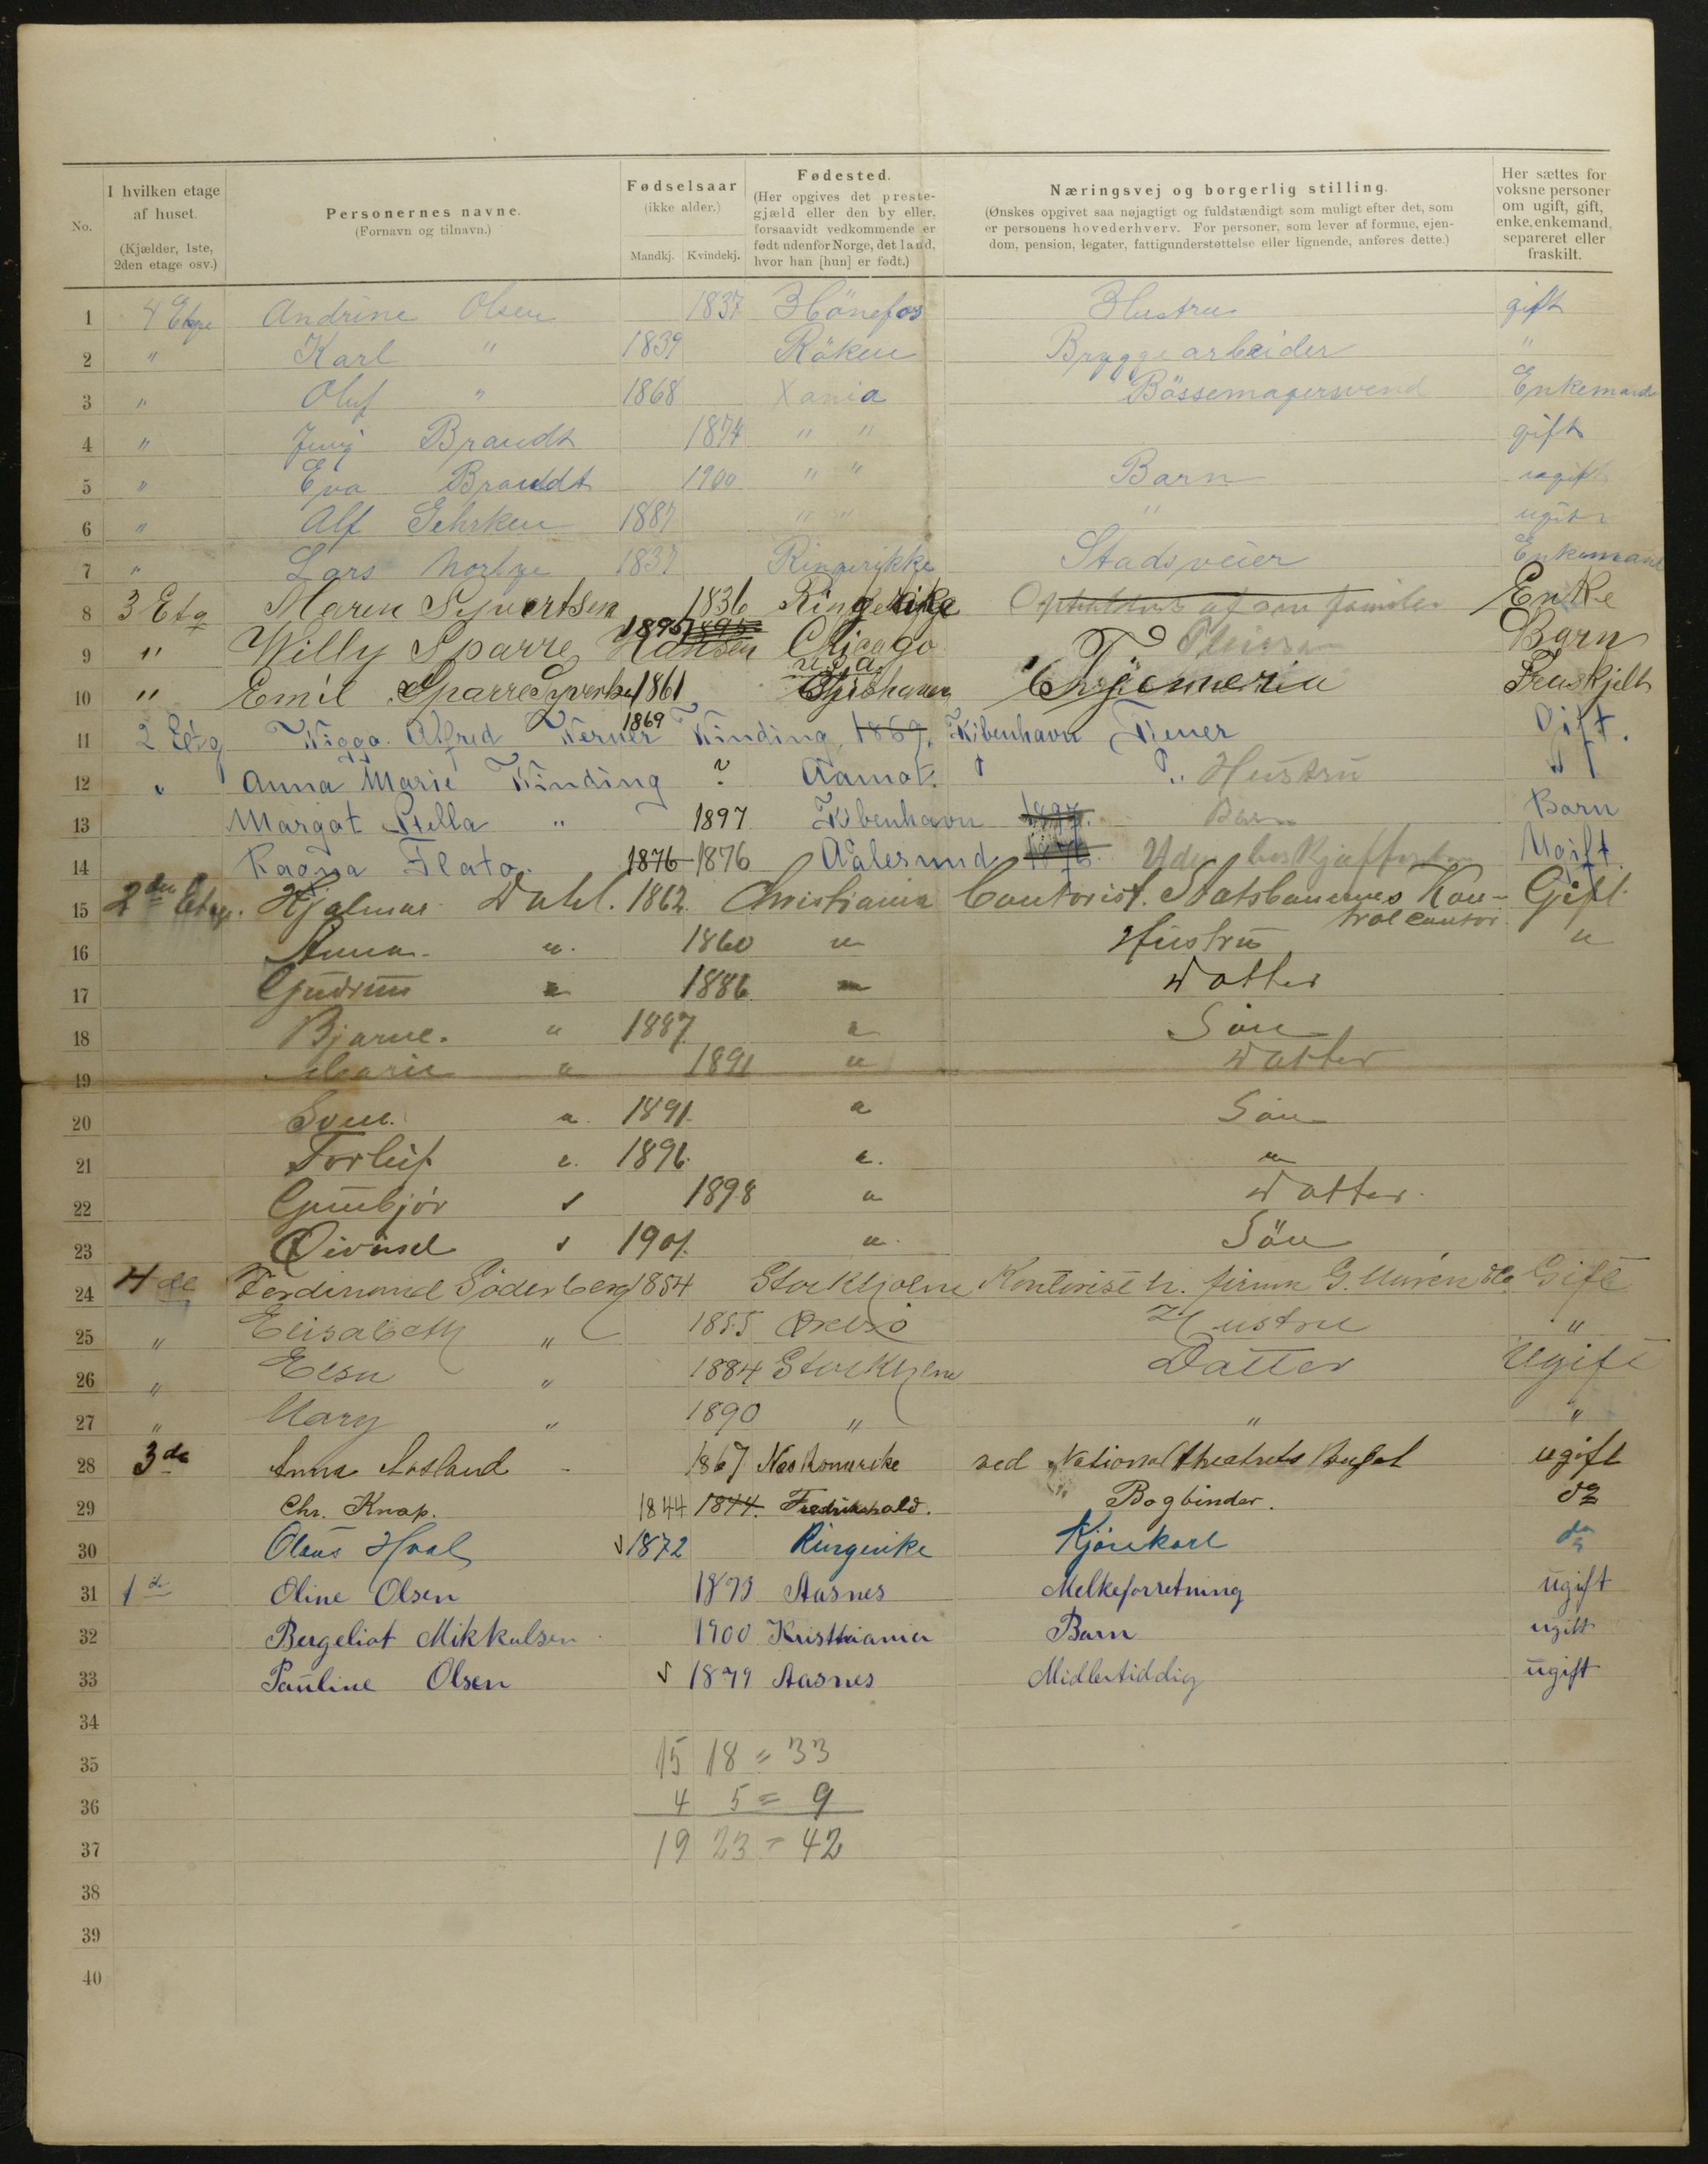 No.
I hvilken etage af huset. (Kjælder, 1ste, 2den etage osv.)
Personernes navne. (Fornavn og tilnavn.)
Fødselsaar (ikke alder.) Mandkj. Kvindekj.
Fødested. (Her opgives det prestegjæld eller den by eller, forsaavidt vedkommende er født udenfor Norge, det land, hvor han [hun] er født.)
Næringsvej og borgerlig stilling. (Ønskes opgivet saa nøjagtigt og fuldstændigt som muligt efter det, som er personens hovederhverv. For personer, som lever af formue, ejendom, pension, legater, fattigunderstøttelse eller lignende, anføres dette.)
Her sættes for voksne personer om ugift, gift, enke, enkemand, separeret eller fraskilt.
1 4 Etage Andrine Olsen 1837 Hönefos Hustru gift
2 " Karl " 1839 Röken Bryggearbeider "
3 " Oluf " 1868 Xania Bössemagersvend Enkemand
4 " Brandt 1874 " " gift
5 " Eva Brandt 1900 " " Barn ugift
6 " Alf Gehrken 1887 " " " ugift
7 " Lars 1837 Ringerikke Stadsveier Enkemand
8 3 Etg Maren Syvertsen 1836 Ringerike af son familie Enke
9 " Willy Sparre Hansen 1895 Chicago Barn
10 " Emil Sparre 1861
11 2 Etg Wiggo Alfred Werner Winding 1869 1869. Kibenhavn
 Gift.
12 " Anna Marie Winding ? Aamot. " Hustru
13 Margat Stella " 1897 Kibenhavn 1897. Barn Barn
14 Ragna Flato. 1876 1876 Aalesund 1876. Ugift.
15 2den Etage. Hjalmar Dahl. 1862. Christiania Contorist. Statsbanernes Kontrolcontor. Gift
16 Anna. " 1860 " Hustru "
17 Gudrun " 1886 " Datter
18 Bjarne. " 1887 " Sön
19 Marie " 1891 " Datter
20 Sven. " 1891. " Sön
21 Torleif " 1896. " "
22 Gunbjör " 1898 " Datter.
23 Öivind " 1901. " Sön
24 4de Ferdinand Söderberg 1854 Stockholm Gift
25 " Elisabeth " 1855 Hustru "
26 " Elsa " 1884 Stockholm Datter Ugift
27 " Mary " 1890 " " "
28 3de Anna 1867 Nes Romerike ved Nationaltheatrets Bufet ugift
29 Chr. Knap. 1844 1844. Fredrikshald. Bogbinder. do
30 Olaus Hval 1872 Ringerike Kjörekarl do
31 1ste Oline Olsen 1873 Aasnes Melkeforretning ugift
32 Bergeliot Mikkalsen 1900 Kristiania Barn ugift
33 Pauline Olsen 1879 Aasnes Midlertiddig ugift
34
35 15 18 = 33
36 4 5 = 9
37 19 23 = 42
38
39
40